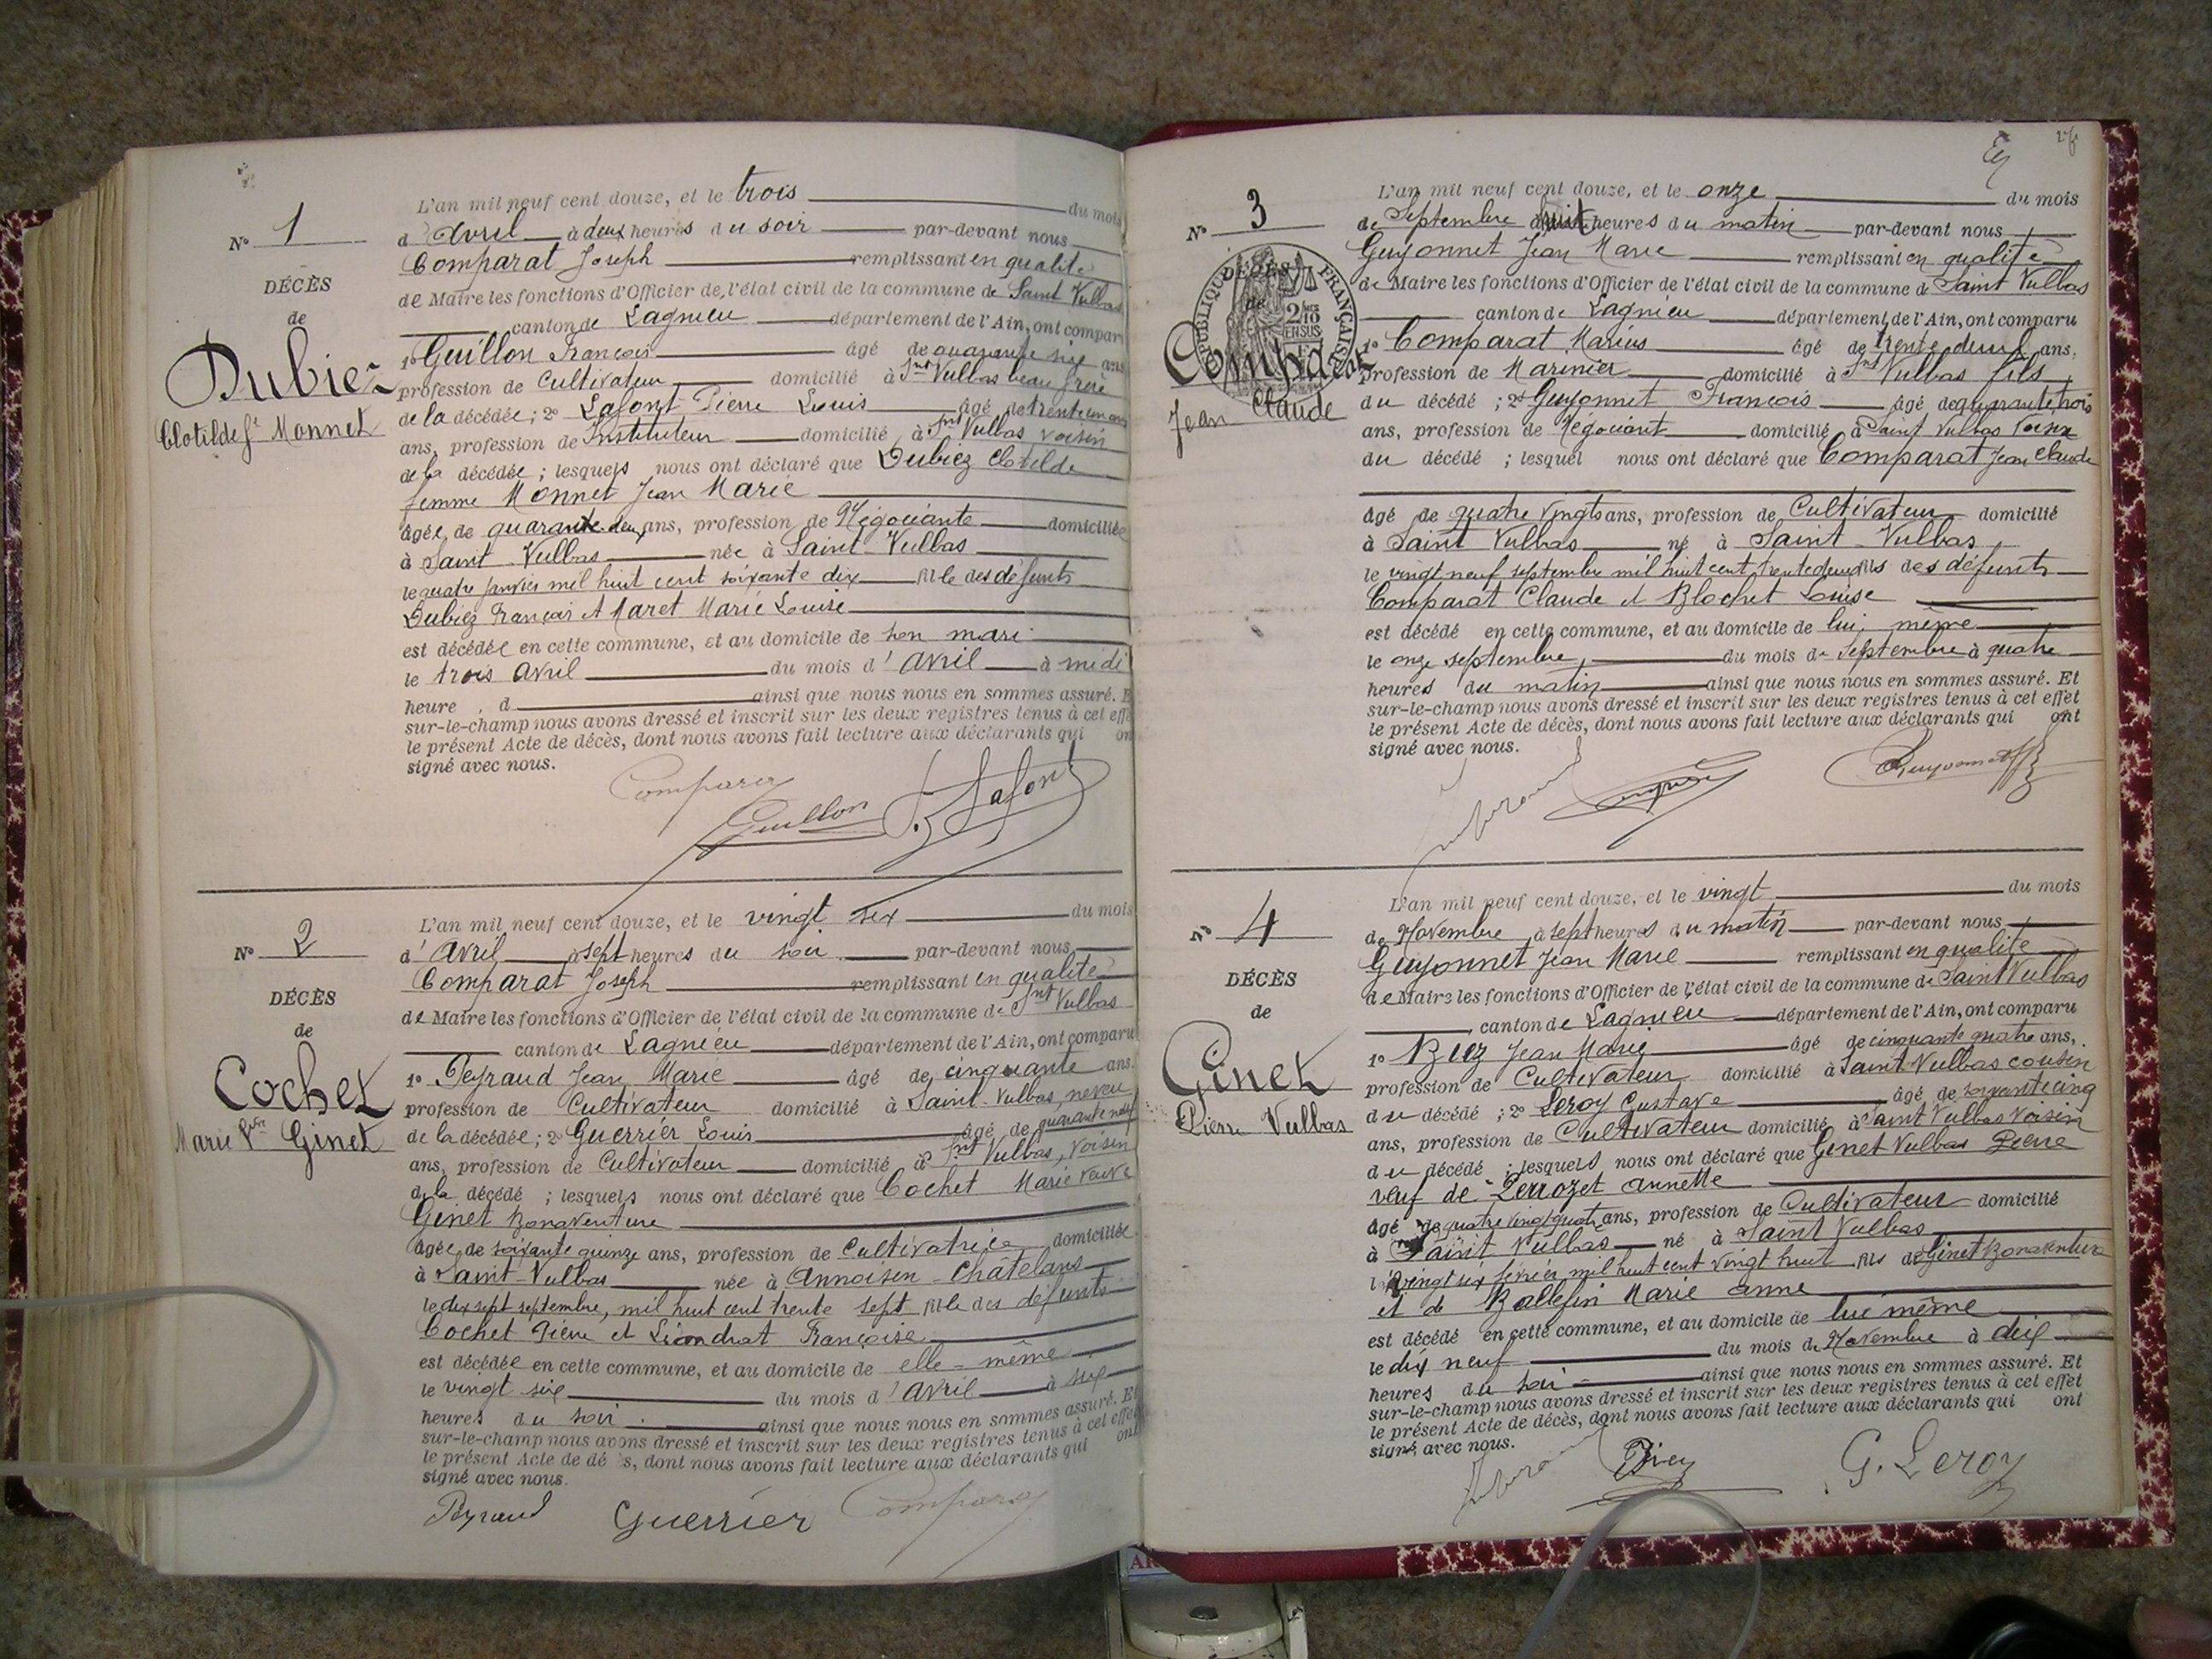 N° 1
DÉCÈS
de
Dubiez
Clotilde fe Monnet
L'an mil neuf cent douze, et le trois du mois
d'Avril à deux heures du soir par-devant nous
Comparat Joseph remplissant en qualité
de Maire les fonctions d'Officier de l'état civil de la commune de Saint Vulbas
canton de Lagnieu département de l'Ain, ont compar
1° Guillon François âgé de quarante six ans
profession de Cultivateur domicilié à Snt Vulbas beau frère
de la décédée; 2° Lafont Pierre Louis âgé de trente un ans
ans, profession de Instituteur domicilié à Snt Vulbas voisin
de la décédée; lesquels nous ont déclaré que Dubiez Clotilde
femme Monnet Jean Marie
âgée de quarante-deux ans, profession de Négociante domiciliée
à Saint-Vulbas née à Saint-Vulbas
le quatre janvier mil huit cent soixante dix fille des défunts
Dubiez François et Maret Marie Louise
est décédée en cette commune, et au domicile de son mari
le trois avril du mois d'Avril à midi
heure, d ainsi que nous nous en sommes assuré. E
sur-le-champ nous avons dressé et inscrit sur les deux registres tenus à cet effe
le présent Acte de décès, dont nous avons fait lecture aux déclarants qui on
signé avec nous.
Comparat
Guillon
Lafont
N° 2
DÉCÈS
de
Cochet
Marie Vve Ginet
L'an mil neuf cent douze, et le vingt six du mois
d'Avril à sept heures du soir par-devant nous
Comparat Joseph remplissant en qualité
de Maire les fonctions d'Officier de l'état civil de la commune de Snt Vulbas
canton de Lagnieu département de l'Ain, ont comparu
1° Peyraud Jean Marie âgé de cinquante ans.
profession de Cultivateur domicilié à Saint-Vulbas, neveu
de la décédée; 2° Guerrier Louis âgé de quarante neuf
ans, profession de Cultivateur domicilié à Snt Vulbas, voisin
de la décédé; lesquels nous ont déclaré que Cochet Marie veuve
Ginet Bonaventure
âgée de soixante quinze ans, profession de Cultivatrice domiciliée
à Saint-Vulbas née à Annoisin-Chatelans
le dix sept septembre, mil huit cent trente sept fille des défunts
Cochet Pierre et Liandrat Françoise
est décédée en cette commune, et au domicile de elle-même
le vingt six du mois d'Avril à six
heures du soir ainsi que nous nous en sommes assuré. Et
sur-le-champ nous avons dressé et inscrit sur les deux registres tenus à cet effet
le présent Acte de dé s, dont nous avons fait lecture aux déclarants qui ont
signé avec nous.
Peyraud Guerrier Comparat
N° 3
RÉPUBLIQUE FRANÇAISE
DÉCÈS
de
Comparat
Jean Claude
L'an mil neuf cent douze, et le onze du mois
de Septembre à huit heures du matin par-devant nous
Guyonnet Jean Marie remplissant en qualité
de Maire les fonctions d'Officier de l'état civil de la commune de Saint Vulbas
canton de Lagnieu département de l'Ain, ont comparu
1° Comparat Marius âgé de trente deux ans,
profession de Marinier domicilié à Snt Vulbas fils
du décédé; 2° Guyonnet François âgé de quarante trois
ans, profession de Négociant domicilié à Saint Vulbas voisin
du décédé; lesquel nous ont déclaré que Comparat Jean Claude
âgé de quatre vingts ans, profession de Cultivateur domicilié
à Saint Vulbas né à Saint-Vulbas
le vingt neuf septembre mil huit cent trente deux fils des défunts
Comparat Claude et Blochet Louise
est décédé en cette commune, et au domicile de lui, même
le onze septembre, du mois de Septembre à quatre
heures du matin ainsi que nous nous en sommes assuré. Et
sur-le-champ nous avons dressé et inscrit sur les deux registres tenus à cet effet
le présent Acte de décès, dont nous avons fait lecture aux déclarants qui ont
signé avec nous.
Guyonnet
N° 4
DÉCÈS
de
Ginet
Pierre Vulbas
L'an mil neuf cent douze, et le vingt du mois
de Novembre à sept heures du matin par-devant nous
Guyonnet Jean Marie remplissant en qualité
de Maire les fonctions d'Officier de l'état civil de la commune de Saint Vulbas
canton de Lagnieu département de l'Ain, ont comparu
1° Biez Jean Marie âgé de cinquante quatre ans,
profession de Cultivateur domicilié à Saint Vulbas cousin
du décédé; 2° Leroy Gustave âgé de soixante cinq
ans, profession de Cultivateur domicilié à Saint Vulbas voisin
du décédé; lesquels nous ont déclaré que Ginet Vulbas Pierre
veuf de Perrozet Annette
âgé de quatre vingt quatre ans, profession de Cultivateur domicilié
à Saint Vulbas né à Saint Vulbas
le vingt six février mil huit cent vingt huit fils de Ginet Bonaventure
et de Ballefin Marie Anne
est décédé en cette commune, et au domicile de lui même
le dix neuf du mois de Novembre à dix
heures du soir ainsi que nous nous en sommes assuré. Et
sur-le-champ nous avons dressé et inscrit sur les deux registres tenus à cet effet
le présent Acte de décès, dont nous avons fait lecture aux déclarants qui ont
signé avec nous.
Biez G. Leroy